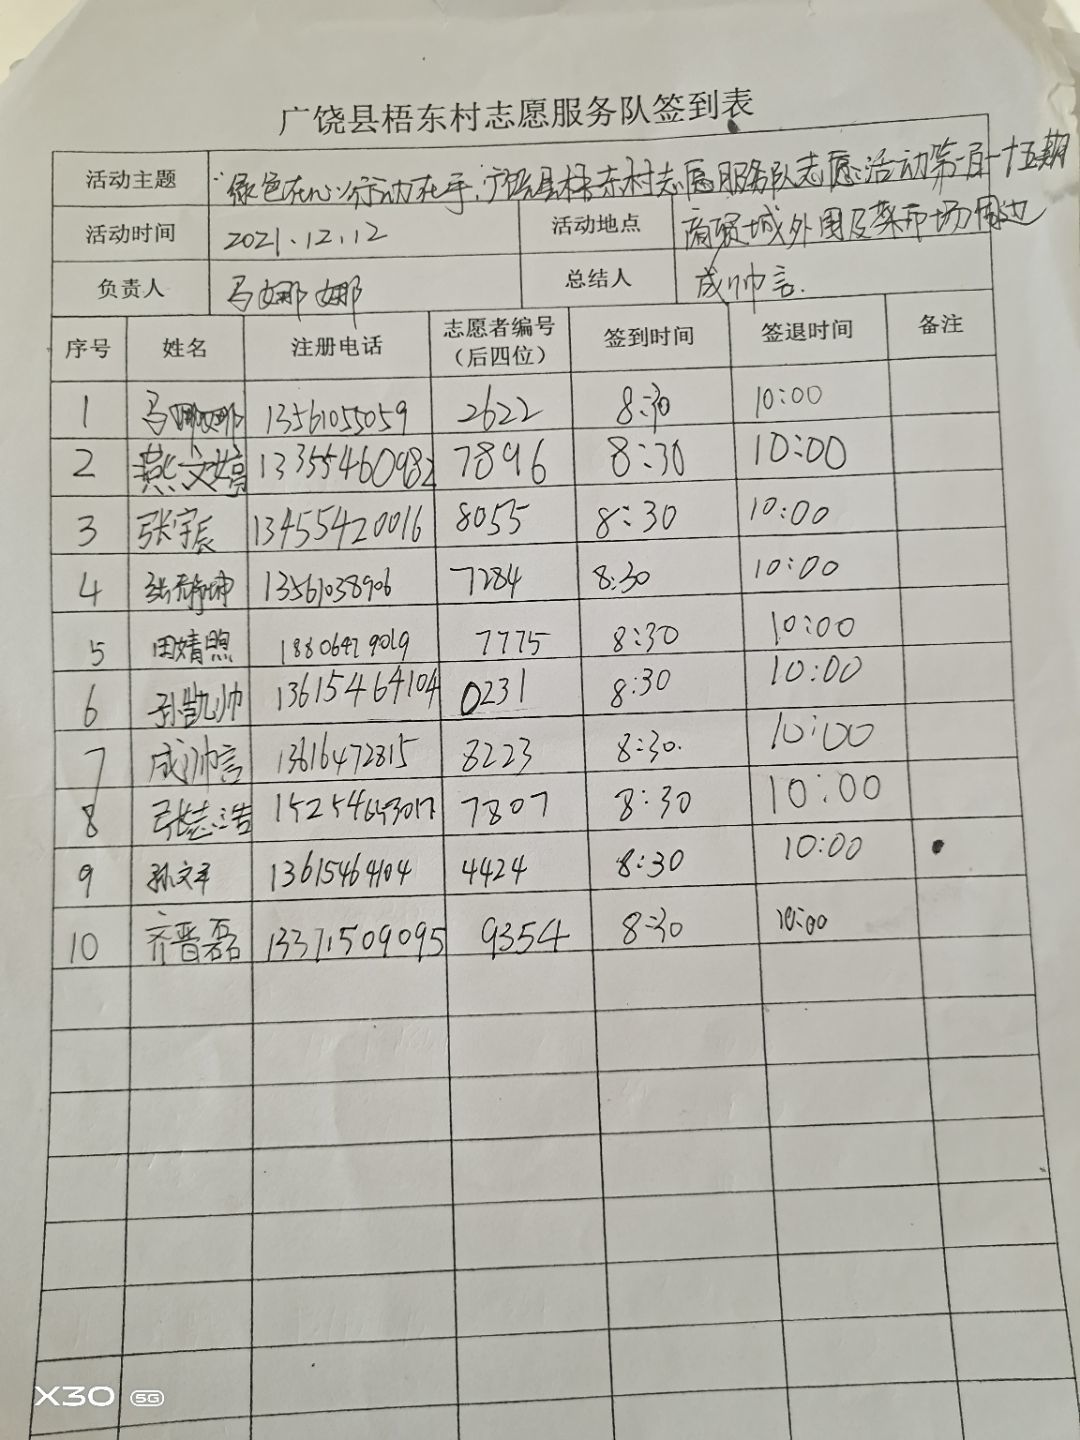 广饶县梧东村志愿服务队签到表
活动主题 "绿色在心,行动在手"广饶县梧东村志愿服务队志愿活动第一百一十五期
活动时间 2021.12.12 活动地点 商贸城外围及菜市场周边
负责人 马娜娜 总结人 成帅言.
序号 姓名 注册电话 志愿者编号（后四位） 签到时间 签退时间 备注
1 马娜娜 13561055059 2622 8:30 10:00
2 燕文婷 13355460982 7896 8:30 10:00
3 张宇辰 13455420016 8055 8:30 10:00
4 13561038906 7284 8:30 10:00
5 田婧煦 18806479019 7775 8:30 10:00
6 孙凯帅 13615464104 0231 8:30 10:00
7 成帅言 13616472815 8223 8:30. 10:00
8 张志浩 7807 8:30 10:00
9 孙文平 13615464104 4424 8:30 10:00
10 齐晋磊 13371509095 9354 8:30 10:00
X30 5G